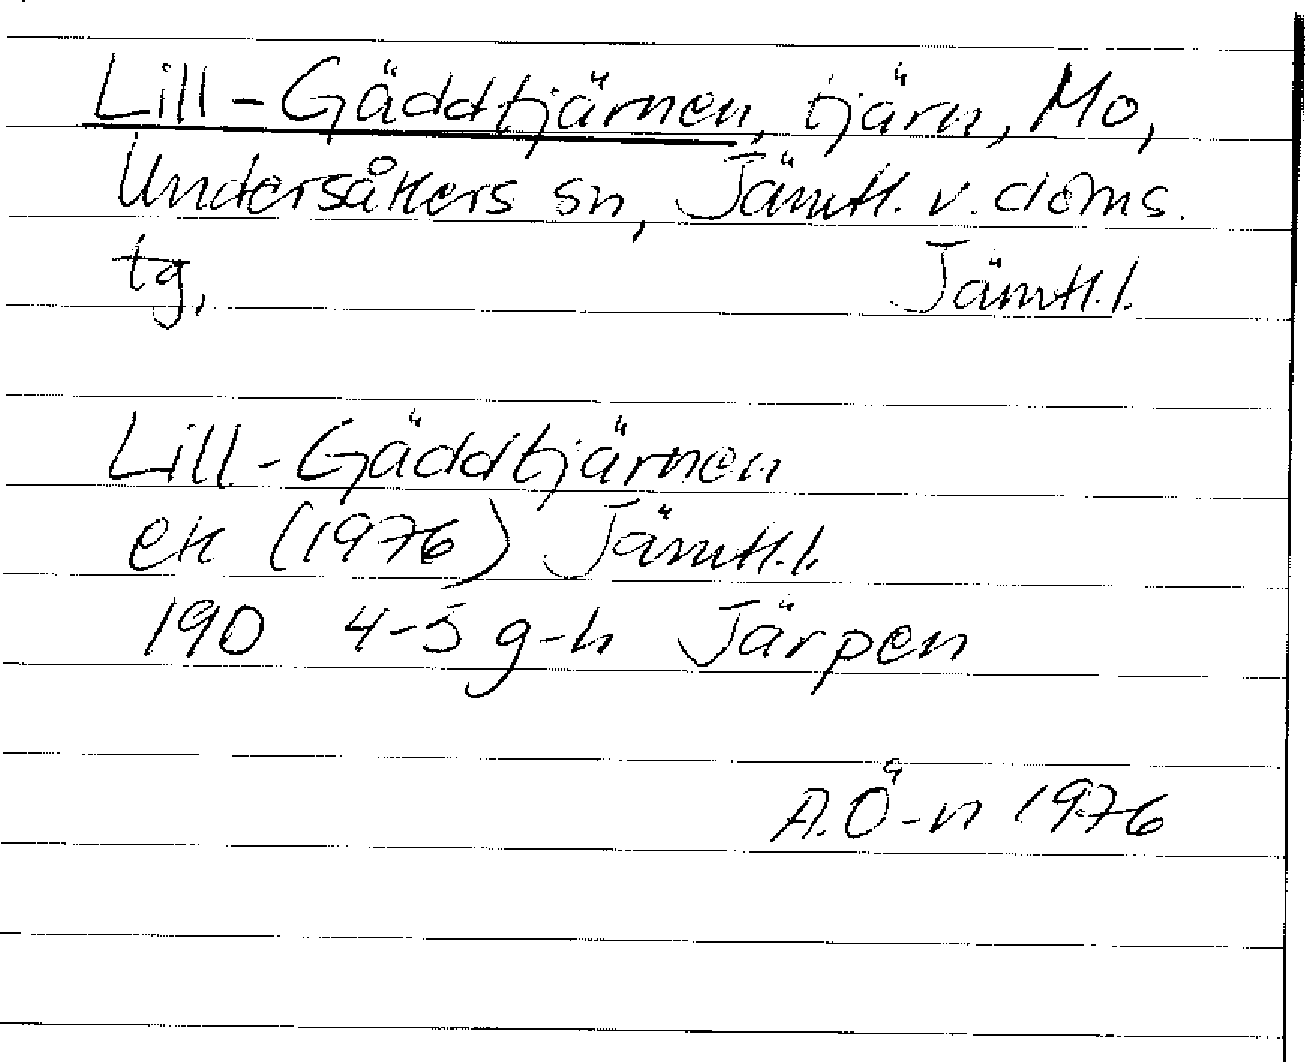 Lill-Gäddtjärnen, tjärn, Mo,
Undersåkers sn, Jämtl. v. doms.
tg, Jämtl.l.
Lill-Gäddtjärnen
ek (1976) Jämtl.l.
190 4-5 g-h Järpen
A.Ö-n 1976